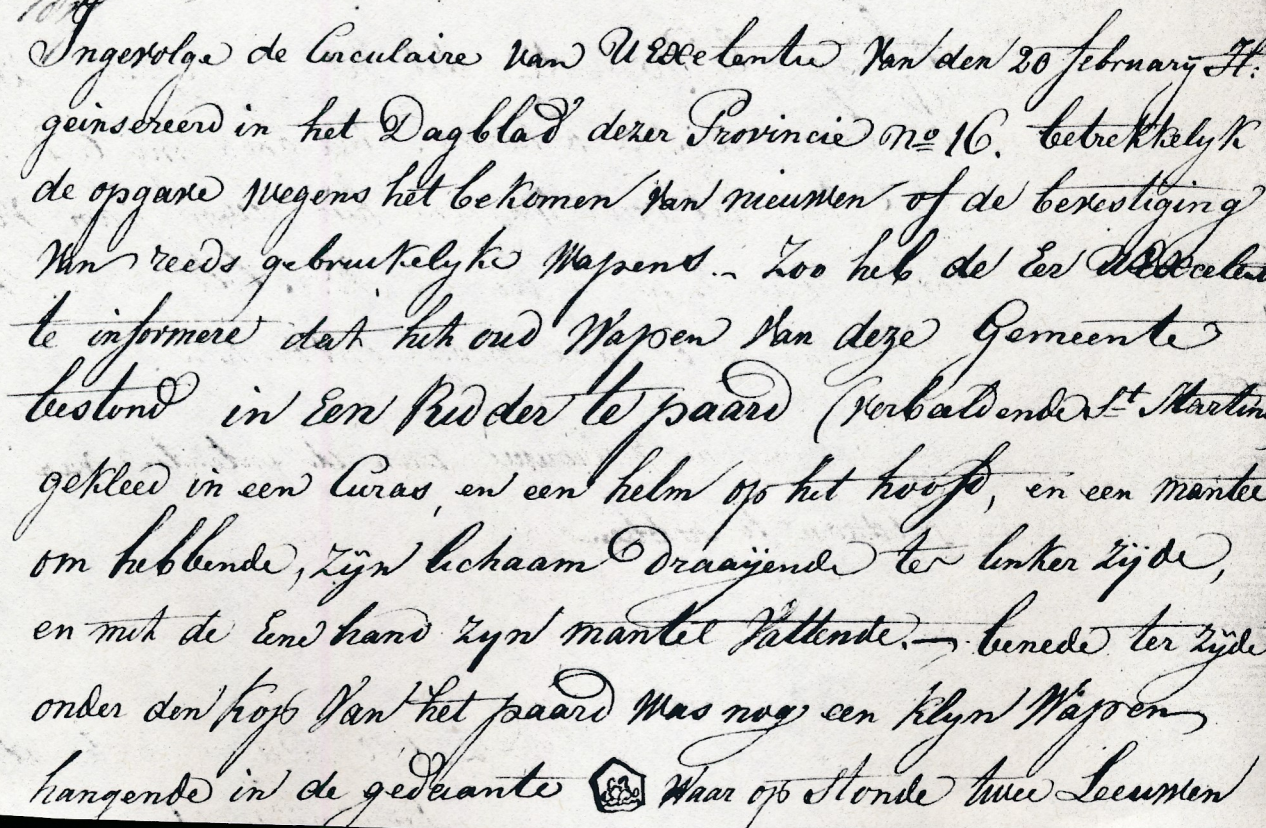 Ingevolge de Circulaire van UExelentie van den 20 february Jl:
geinsereerd in het Dagblad dezer Provincie No 16. betrekkelyk
de opgave wegens het bekomen van nieuwen of de bevestiging
van reeds gebruikelyke Wapens.- Zoo heb de Eer UExcelent
te informere dat het oud Wapen van deze Gemeente
bestond in Een Ridder te paard (verbeeldende St Martin
gekleed in een Curas, en een helm op het hoofd, en een mantel
om hebbende, zijn lichaam Draaijende ter linker zijde,
en met de Eene hand zyn mantel vattende.- benede ter zijde
onder den kop van het paard was nog een klyn Wapen
hangende in de gedaante waar op stonde twee Leeuwen